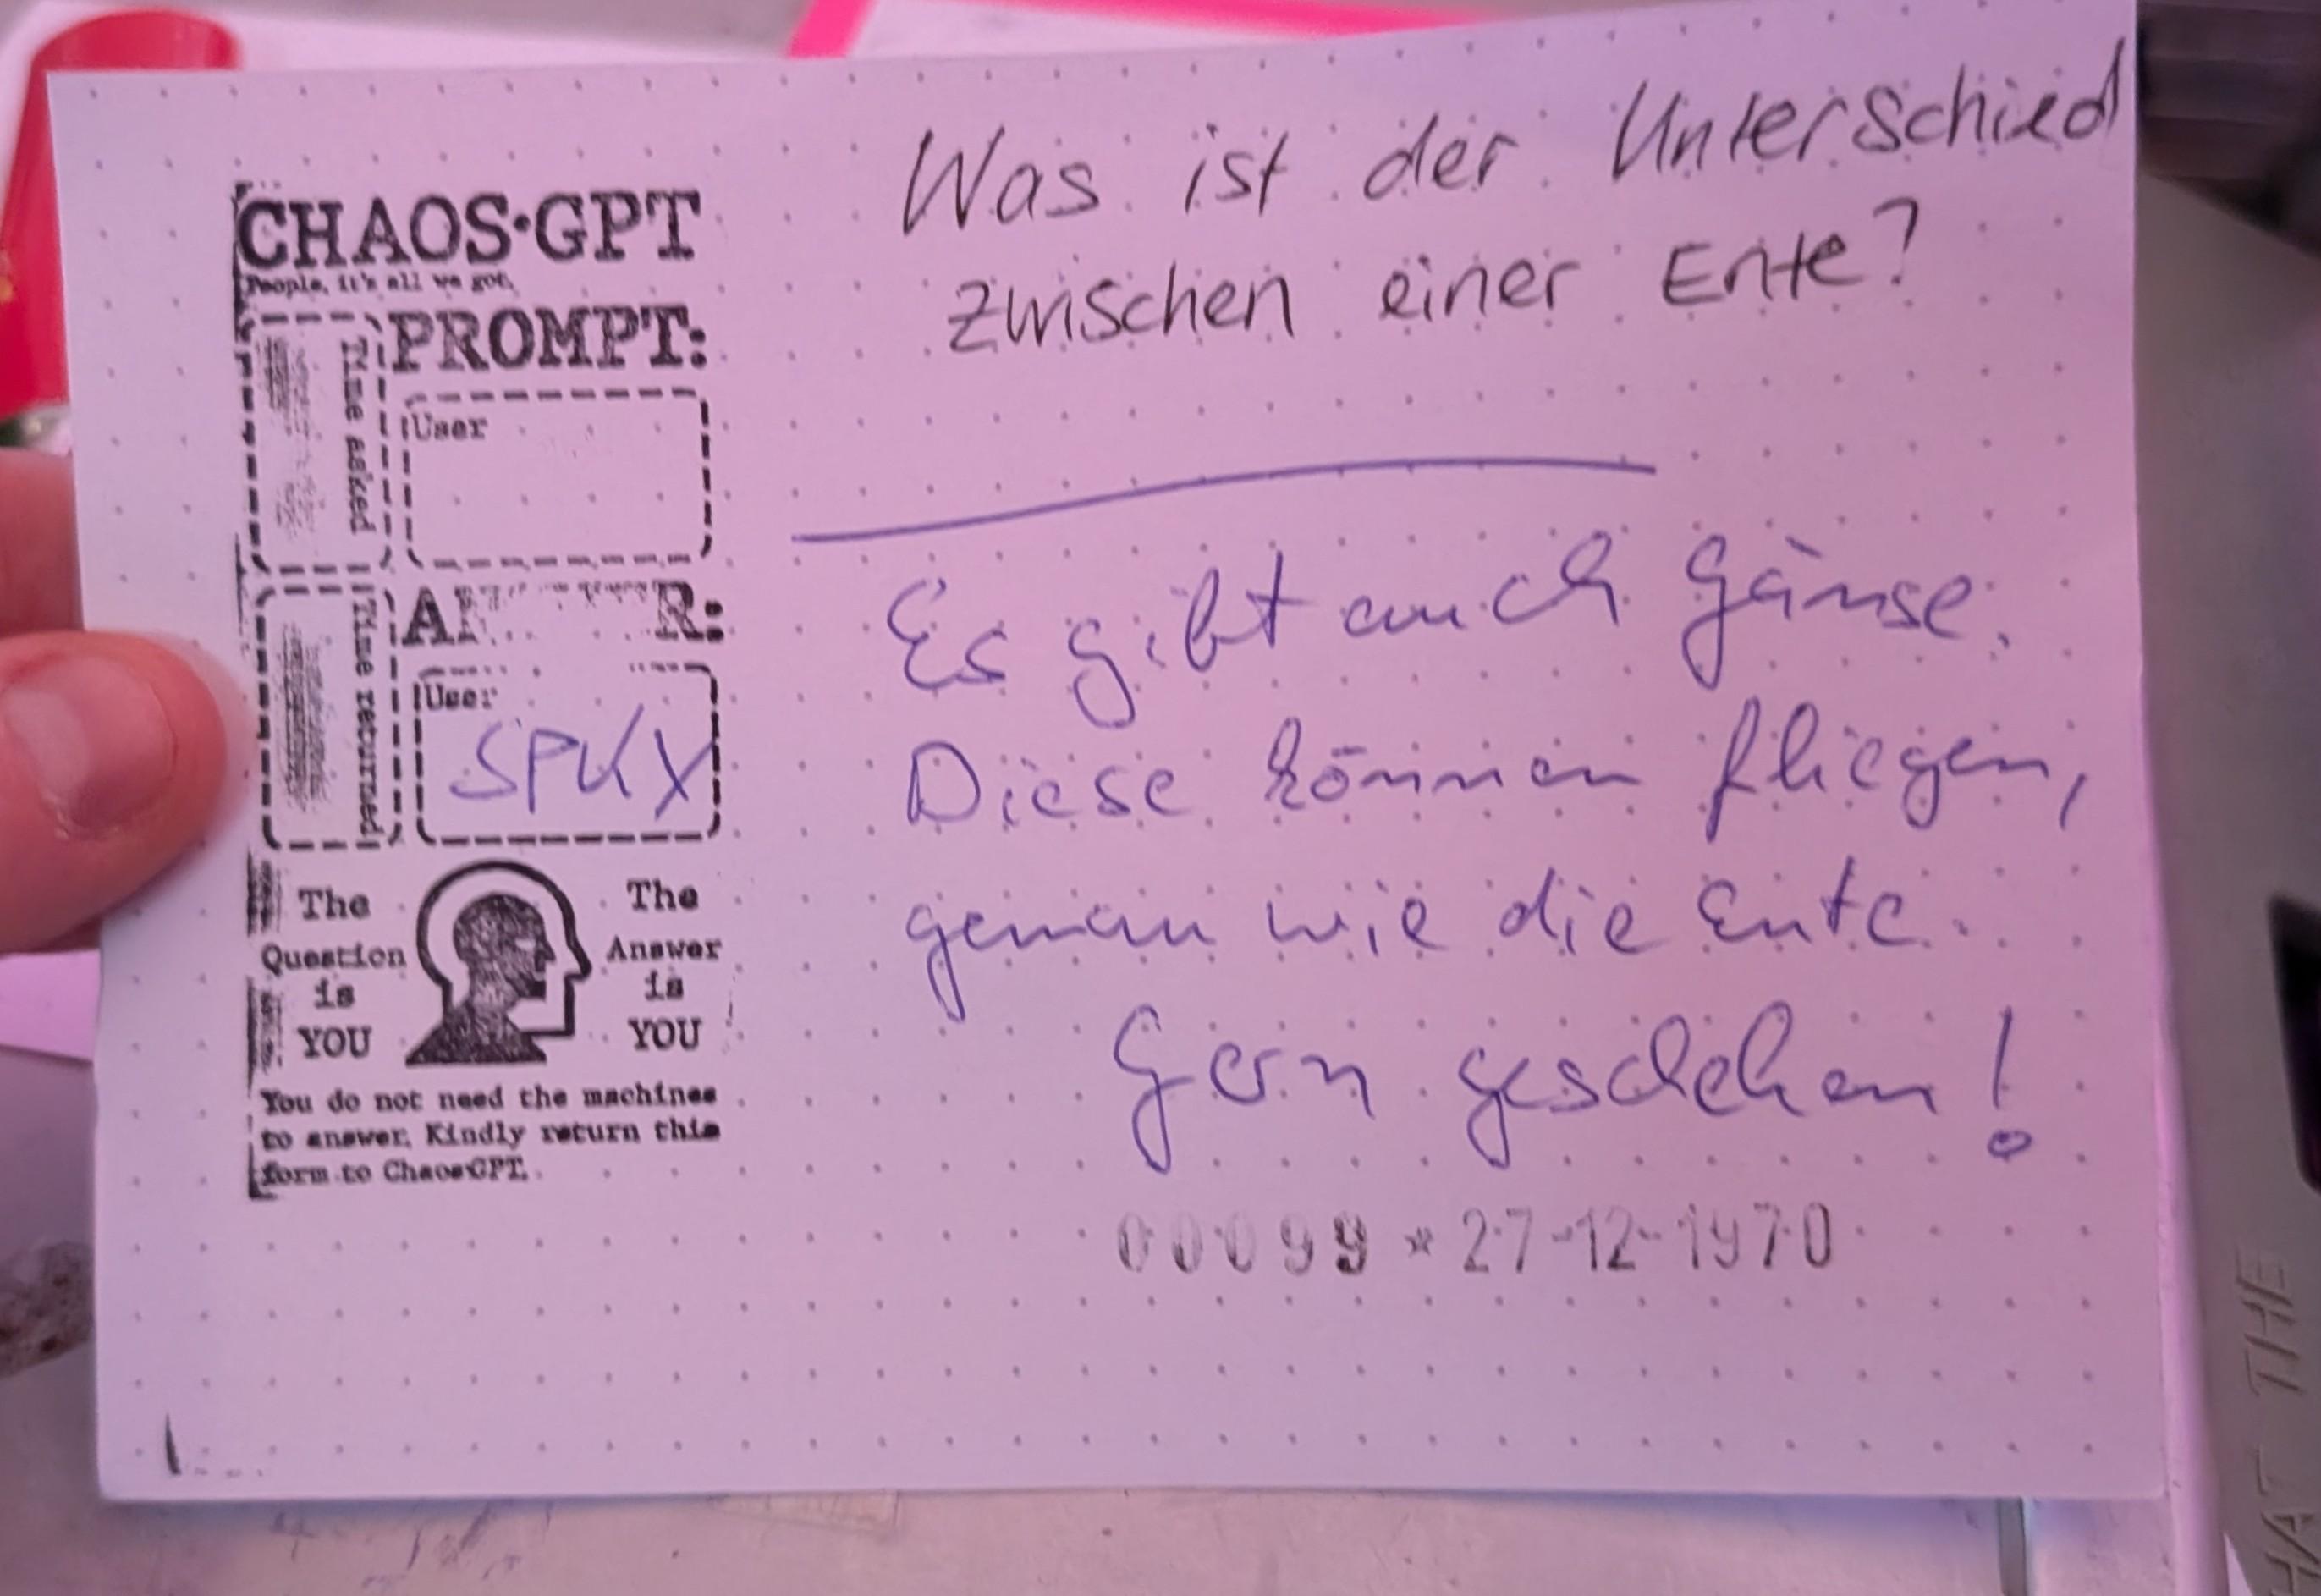 CHAOS·GPT
People, it's all we got.
PROMPT:
Time asked
User
Was ist der Unterschied
zwischen einer Ente?
Time returned
User
SPUX
Es gibt auch Gänse.
Diese können fliegen,
genau wie die Ente.
Gern geschehen!
The Question is YOU
The Answer is YOU
You do not need the machines
to answer. Kindly return this
form to ChaosGPT.
00099 * 27-12-1970
HAT THE